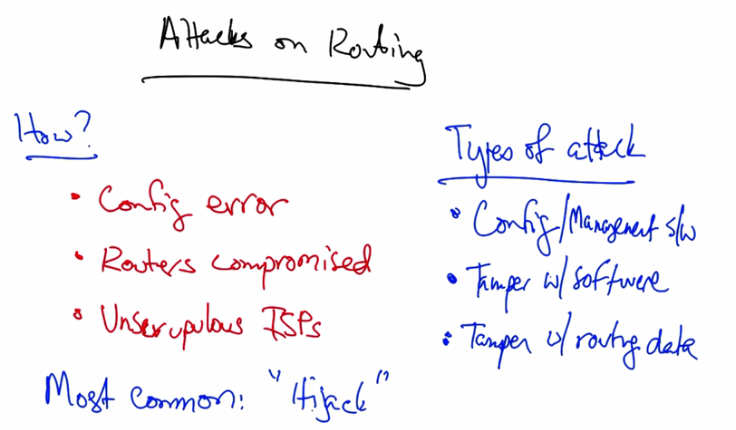 Attacks on Routing
How?
• Config error
• Routers compromised
• Unscrupulous ISPs
Most common: "Hijack"
Types of attack
• Config/Management s/w
• Tamper w/ software
• Tamper w/ routing data